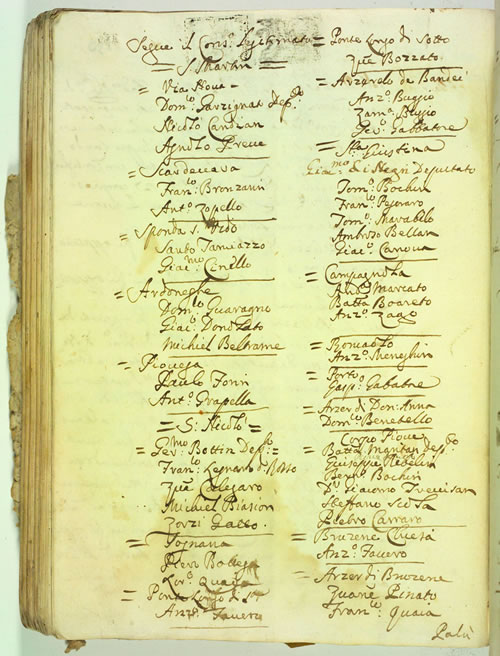 Segue il Cons.º Legitimato
= S. Martin =
= Via Nova =
Dom.co Dep.to
Nicolò Candian
Agnolo Preve
= Scardevara
Fran.co Bronzarin
Ant.º Zopello
= Sponda S. Vidò
Santo Tamiazzo
Giac.mo Cinello
= Ardoneghe
Dom.co Guaragno
Giac.º Donolato
Michiel Beltrame
= Piovega
Paulo Forin
Ant.º Grapella
= S. Nicolò =
= Gev.mo Bottin Dep.to =
Fran.co Legnaro d.º Rosso
Zuã Calegaro
Michiel Biasion
Zorzi Gallo
= Tognana
Piero Bottega
Lor.º Quaia
= Ponte Longo di
Anz.º Favero
= Ponte Longo di Sotto
Zuã Bozzato
= Arzerelo de
Anz.º Bugio
Zam.º Bugio
Gev.º Gabbatore
= S.ta Giustina
Giac.mo de i Negri Deputato
Tom.º Bochin
Fran.co Pesavaro
Tom.º Mavabelo
Ambroso Bellan
Giac.º Canova
= Campagnola
And.º Marcato
Batta Boareto
Anz.º Zago
=
Anz.º Meneghin
= Porto
Gasp.º Gabatore
= Arzer di Don: Anna
Dom.co Benetello
Corpo Piove
= Batta Mantoan Dep.to
Giuseppe
Ber.º Bochin
D. Giacomo Trevisan
Steffano
Pietro Carraro
= Bruzene Chiesa
Anz.º Favero
= Arzer di Bruzene
Zuane Pinato
Fran.co Quaia
Palù